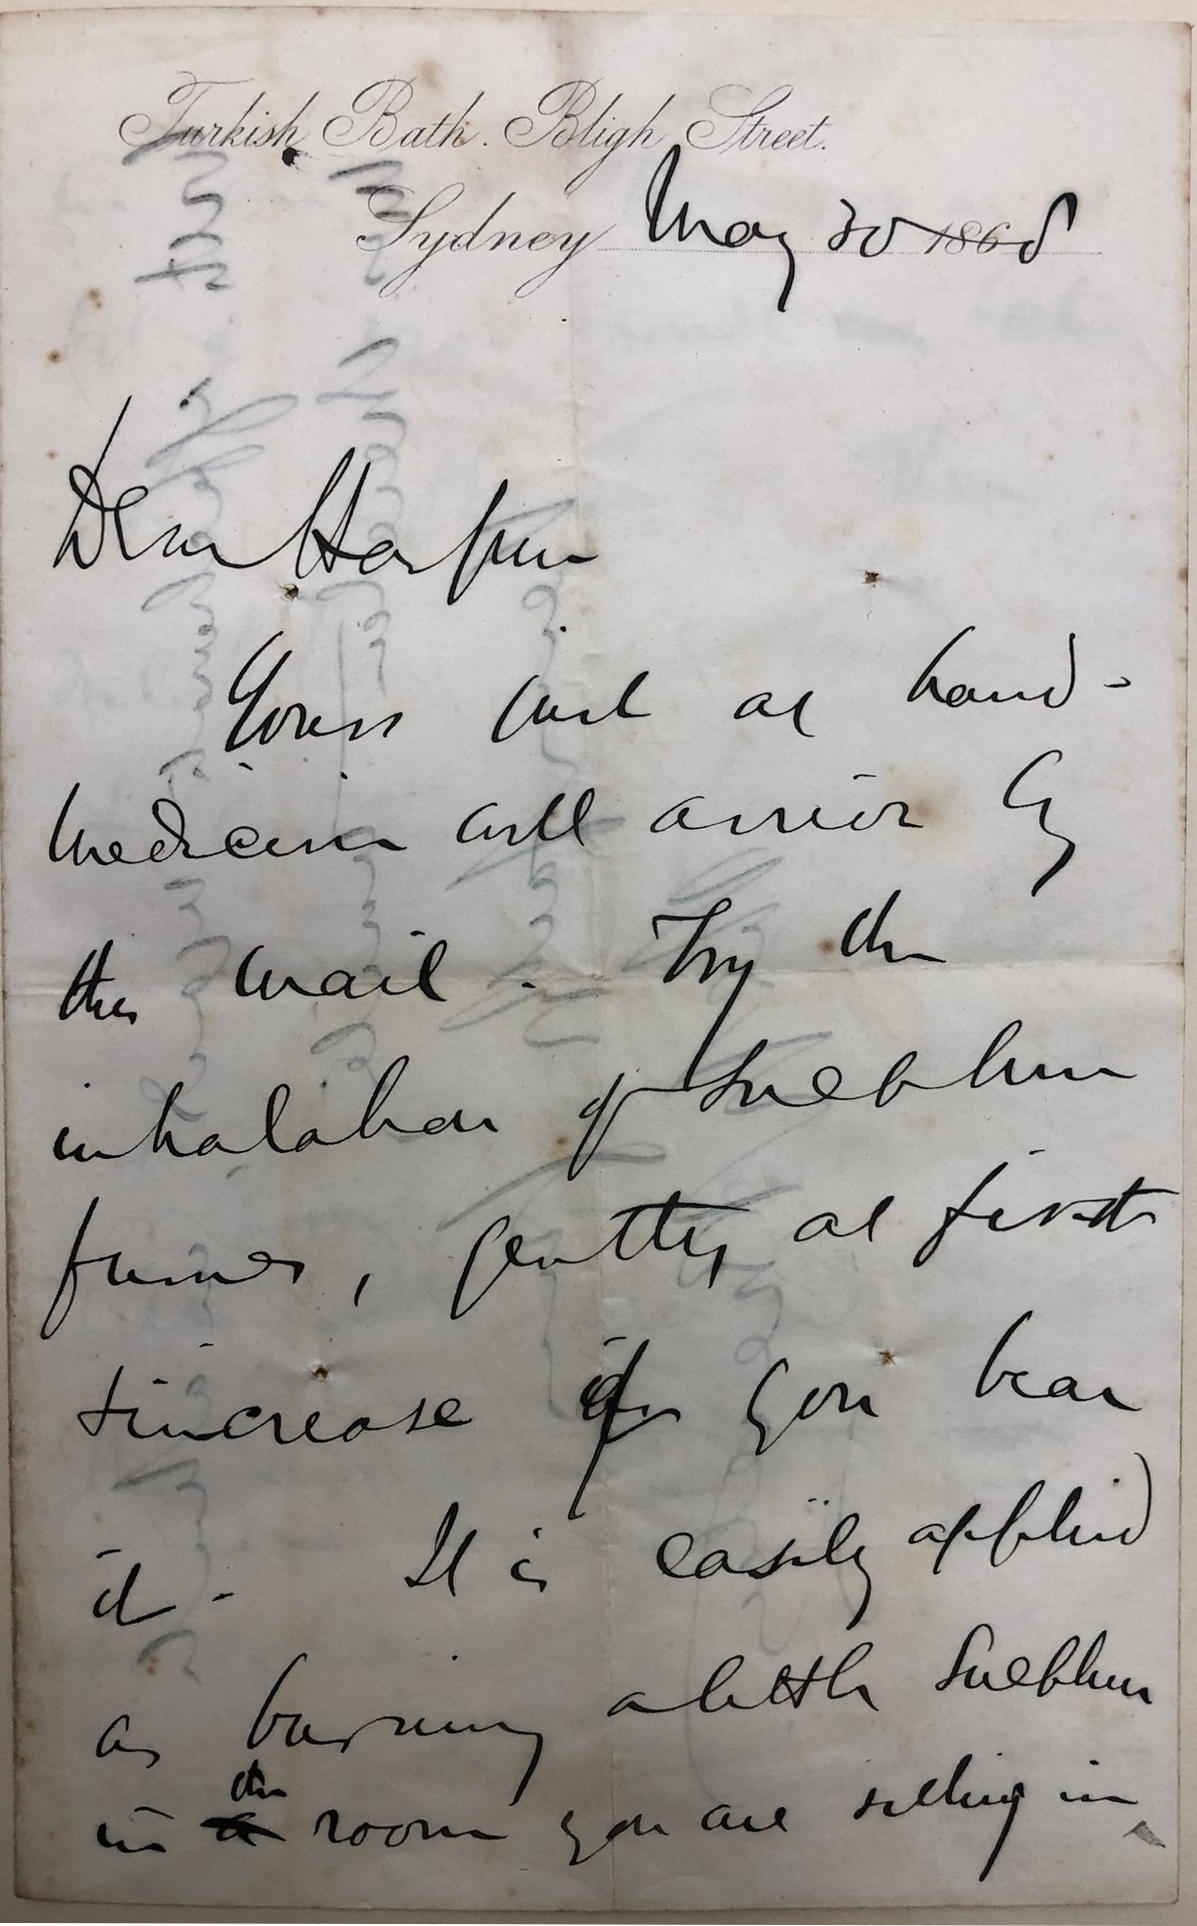 Turkish Bath. Bligh Street.
Sydney May 30 1868
Dear Harpur
Yours just at hand -
Medicine will arrive by
this mail. Try the
inhalation of Sulphur
fumes, gently at first
& increase if you bear
it - It is easily applied
as burning a little Sulphur
in the room you are sitting in